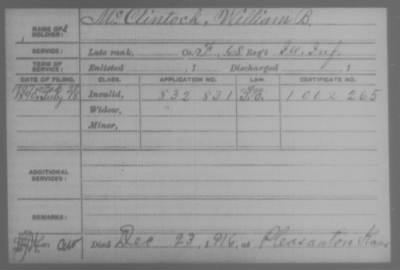 NAME OF SOLDIER: McClintock, William B.
SERVICE: Late rank, Co. F, 68 Reg't Ill. Inf.
TERM OF SERVICE: Enlisted , 1 Discharged , 1
DATE OF FILING. CLASS. APPLICATION NO. LAW. CERTIFICATE NO.
Invalid, 832 831 1002 265
Widow,
Minor,
ADDITIONAL SERVICES:
REMARKS:
Died Dec 23, 1916, at Pleasanton Kans